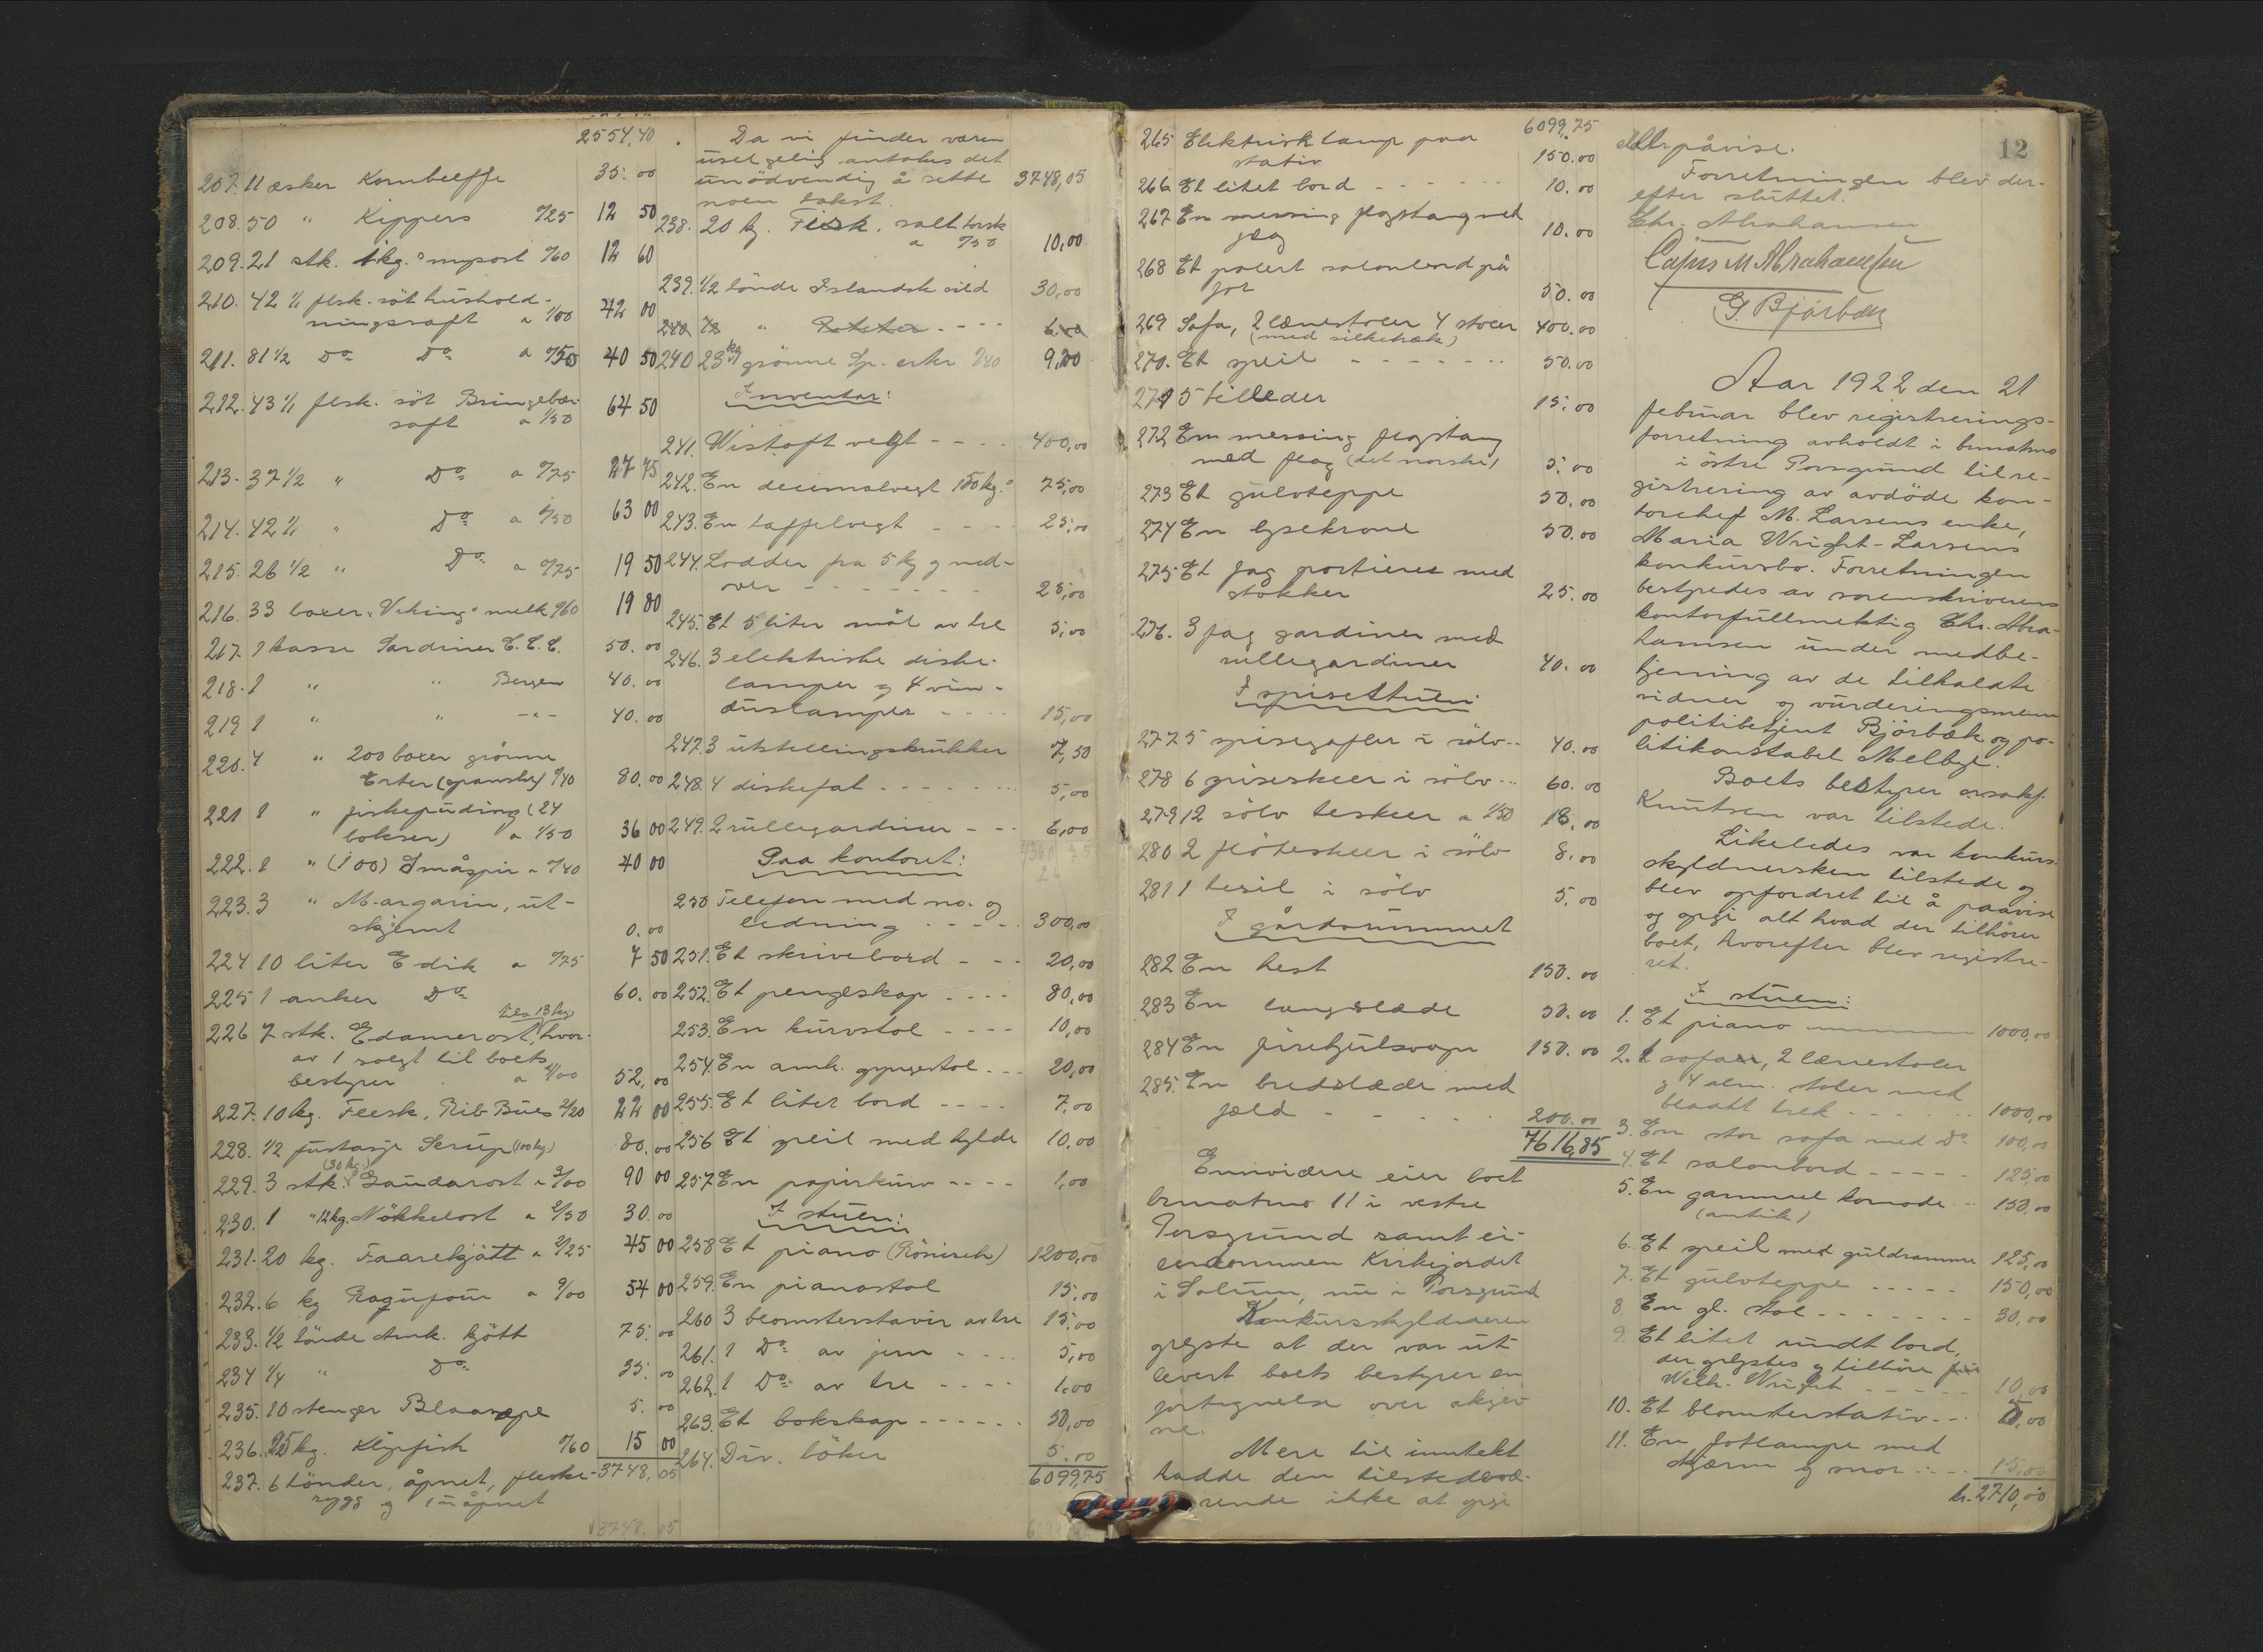 2554,40
207. 11 æsker Kornbeeffe 35.00
208. 50 " Kippers 0/25 12 50
209. 21 stk. 1 kg. mysost 0/60 12 60
210. 42 1/1 flsk. söt hushold-
ningssaft a 1/00 42 00
211. 81 1/2 Do Do a 0/50 40 50
212. 43 1/1 flsk. söt Bringebær
saft a 1/50 64 50
213. 37 1/2 " Do a 0/75 27 75
214. 42 1/1 " Do a 1/50 63 00
215. 26 1/2 " Do a 0/75 19 50
216. 33 boxer "Viking" melk 0/60 19 80
217. 1 kasse Sardiner C.C.C. 50.00
218. 1 " " Bergen 40.00
219 1 " " -"- 40.00
220. 4 " 200 boxer grönne
Erter (spanske) 0/40 80.00
221 1 " fiskepuding (24
bokser) a 1/50 36 00
222. 1 " (100) Småspir a 0/40 40 00
223. 3 " Margarin, ut-
skjemt 0.00
224 10 liter Edik a 0/75 7 50
225 1 anker Do 60.00
tils. 13 kg
226 7 stk. Edamerost, hvor-
av 1 solgt til boets
bestyrer a 4/00 52,00
227. 10 kg. Flesk, Rib Bues 2/20 22 00
228. 1/2 fustasje Serup (100 kg) 80.00
(30 kg.)
229. 3 stk. Gaudarost a 3/00 90 00
230. 1 " 12 kg. Nökkelost a 2/50 30.00
231. 20 kg. Faarekjött a 2/25 45 00
232. 6 kg Ragufour a 9/00 54 00
233. 1/2 tönde Amk. kjött 75.00
234 1/4 " Do 35.00
235. 10 stenger Blaasæpe 5.00
236. 25 kg. Klipfisk 0/60 15 00
3748,05
237. 6 tönder, åpnet, fleske-
rygg og 1 uåpnet
3748.05
Da vi finder varen
uselgelig antokes det
unödvendig å sette 3748,05
noen takst.
238. 20 kg. Fisk, salt torsk
a 0/50 10,00
239. 1/2 tönde Islandsk sild 30,00
240 1/2 " Poteter 6.00
240 23 kg grönne Sp. erter 0/40 9,20
Inventar:
241. Wistoft vegt 400,00
242. En decimalvegt 150 kg. 75,00
243. En taffelvegt 25,00
244. Lodder fra 5 kg og ned-
over 25,00
245. Et 5 liter mål av tre 5,00
246. 3 elektriske diske-
lamper og 4 vin-
duslamper 15,00
247. 3 utstellingskrukker 7,50
248. 4 diskefat 5,00
249. 2 rullegardiner 6,00
Paa kontoret:
250 Telefon med no. og
ledning 300,00
251. Et skrivebord 20,00
252. Et pengeskap 80,00
253. En kurvstol 10,00
254. En amk. gyngestol 20,00
255. Et litet bord 7,00
256 Et speil med hylde 10,00
257. En papirkurv 1,00
I stuen:
258 Et piano (Rönisch) 1200,00
259. En pianostol 15,00
260 3 blomsterstativ av tre 15,00
261. 1 Do av jern 5,00
262. 1 Do av tre 1,00
263. Et bokskap 50,00
264. Div. böker 5.00
6099,75
6099.75
265 Elektrisk lampe paa
stativ 150.00
266. Et litet bord 10.00
267 En messing flagstang med
flag 10.00
268 Et polert salonbord på
for 50.00
269 Sofa, 2 lænestoler 4 stoler 400.00
(med silketræk)
270. Et speil 50.00
271 5 billeder 15.00
272 En messing flagstang
med flag (det norske) 5.00
273 Et gulvteppe 50.00
274 En lysekrone 50.00
275 Et fag portierer med
stokker 25.00
276. 3 fag gardiner med
rullegardiner 40.00
I spisestuen:
277 5 spisegafler i sölv 40.00
278 6 spiseskeer i sölv 60.00
279 12 sölv teskeer a 1/50 18,00
280 2 flöteskeer i sölv 8,00
281 1 tesil i sölv 5.00
I gårdsrummet
282 En hest 150.00
283 En langslæde 50.00
284 En firehjulsvogn 150.00
285. En bredslæde med
fjeld 200.00
7616,85
Ennvidere eier boet
brmatrno 11 i vestre
Porsgrund samt ei-
endommen Kirkejordet
i Solum, nu i Porsgrund
Konkursskyldneren
oplyste at der var ut
levert boets bestyrer en
fortegnelse over skjev
ne.
Mere til inntekt
hadde den tilstedevæ-
rende ikke at opgi
12
eller påvise.
Forretningen blev der-
efter sluttet.
Chr. Abrahamsen
Cajus M Abrahamsen
G. Bjørbæk
Aar 1922 den 21
februar blev registrerings-
forretning avholdt i brmatrno
i östre Porsgrund til re-
gistrering av avdöde kon-
torchef M. Larsens enke,
Maria Wright-Larsens
konkursbo. Forretningen
bestyredes av sorenskriverens
kontorfullmektig Chr. Abra-
hamsen under medbe-
tjening av de tilkaldte
vidner og vurderingsmenn
politibetjent Bjørbæk og po-
litikonstabel Melbye.
Boets bestyrer o.r.sakf.
Knutsen var tilstede.
Likeledes var konkurs-
skyldnersken tilstede og
blev opfordret til å paavise
og opgi alt hvad der tilhörer
boet, hvorefter blev registre-
ret.
I stuen:
1. Et piano 1000,00
2. 1 sofa, 2 lænestoler
og 4 alm. stoler med
blaatt trek 1000,00
3. En stor sofa med Do 100,00
4. Et salonbord 125,00
5. En gammel komode 150,00
(antik)
6. Et speil med guldramme 125,00
7. Et gulvteppe 150,00
8. En gl. stol 30,00
9. Et litet rundt bord,
der oplystes å tilhöre frk
Welh. Wright 10,00
10. Et blomsterstativ 5,00
11. En fotlampe med
skjærm og snor 15,00
kr. 2710,00